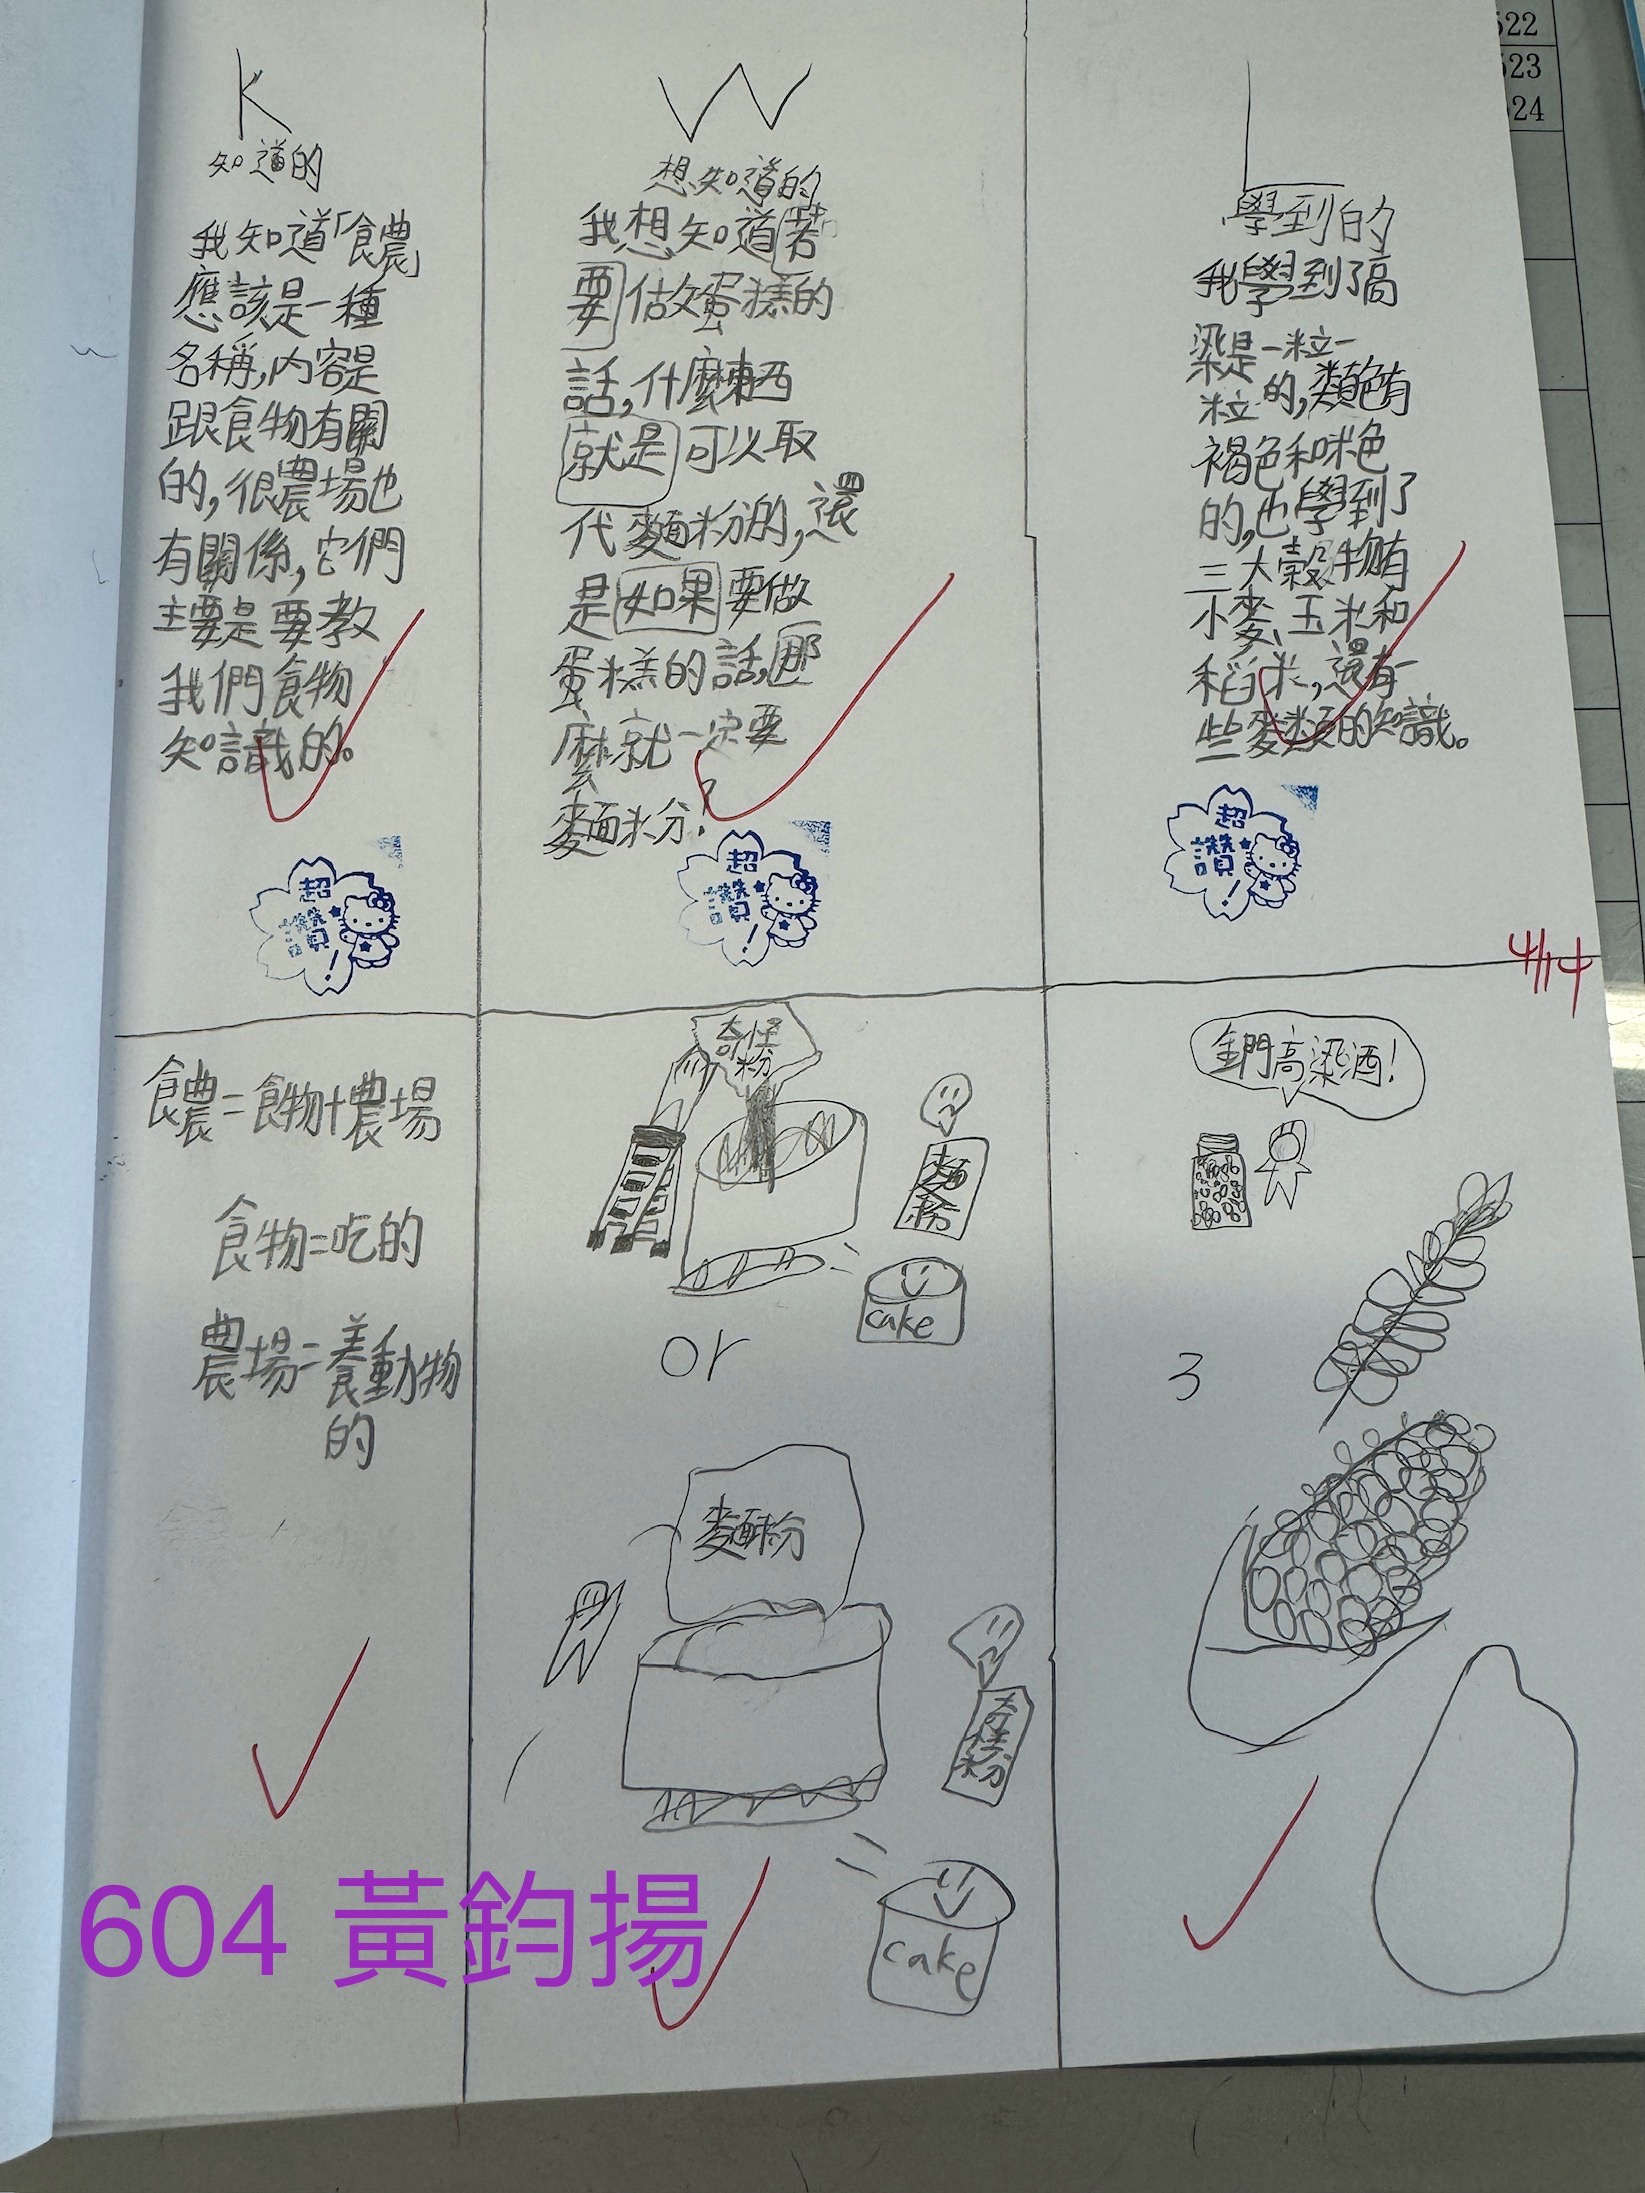 522
523
524
K
知道的
我知道「食農」
應該是一種
名稱,內容是
跟食物有關
的,很農場也
有關係,它們
主要是要教
我們食物
知識的。
超讚!
W
想知道的
我想知道若
要做蛋糕的
話,什麼東西
就是可以取
代麵粉的,還
是如果要做
蛋糕的話,那
麼就一定要
麵粉?
超讚!
L
學到的
我學到了高
粱是一粒一
粒的,類色有
褐色和咪色
的,也學到了
三大穀物有
小麥、玉米和
稻米,還有一
些麥類的知識。
超讚!
4/14
食農=食物+農場
食物=吃的
農場=養動物
的
奇怪
粉
麵粉
=
cake
or
麵粉
奇怪粉
=
cake
金門高粱酒!
3
604 黃鈞揚